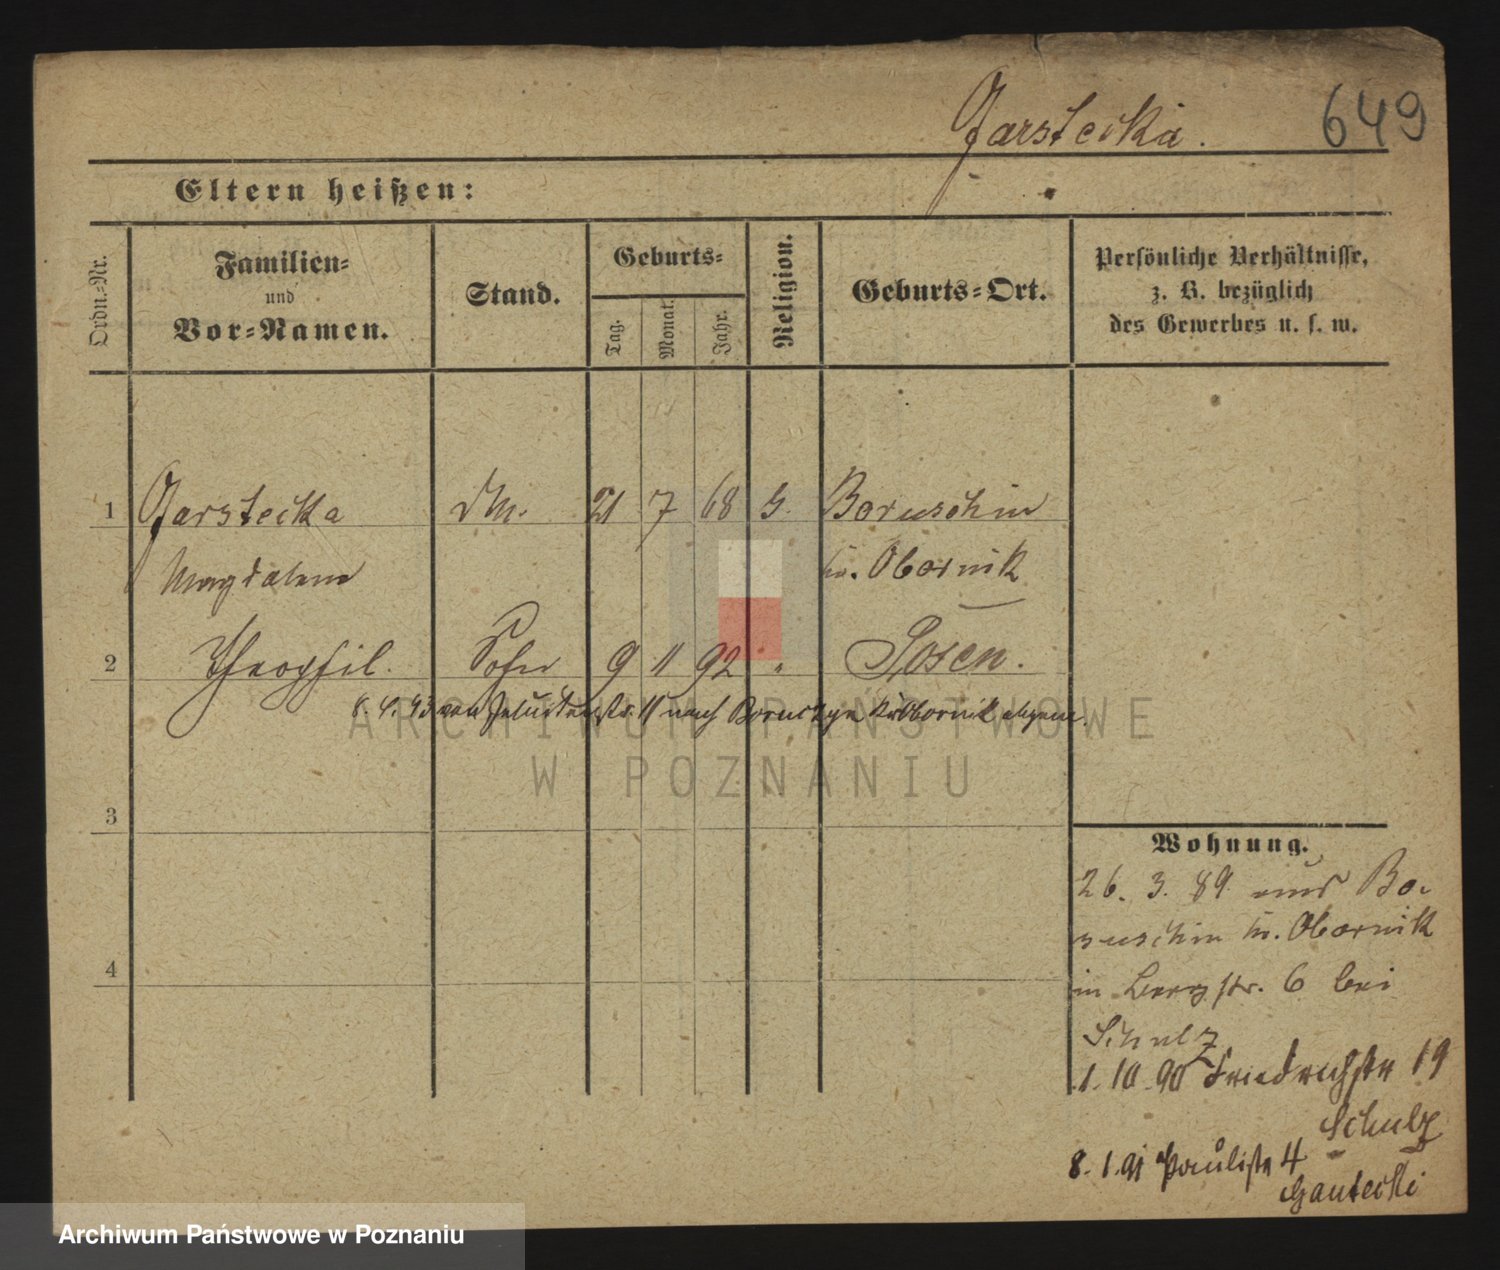 Garstecka.
649
Eltern heißen:
Ordn.-Nr.
Familien-
und
Vor-Namen.
Stand.
Geburts-
Tag.
Monat.
Jahr.
Religion.
Geburts-Ort.
Persönliche Verhältnisse,
z. B. bezüglich
des Gewerbes u. s. w.
1 Garstecka 21 7 68 Boruschin
Magdalena Obornik
2 Theophil. Sohn 9 11 92 " Posen.
8. 4. 93 von 11 nach Obornik
3
4
Wohnung.
26. 3. 89 aus Bo-
ruschin Kr. Obornik
in Bergstr. 6 bei
Schulz
1. 10. 90 Friedrichstr 19
Schulz
8. 1. 91 Paulistr 4
Gantecki
ARCHIWUM PAŃSTWOWE
W POZNANIU
Archiwum Państwowe w Poznaniu